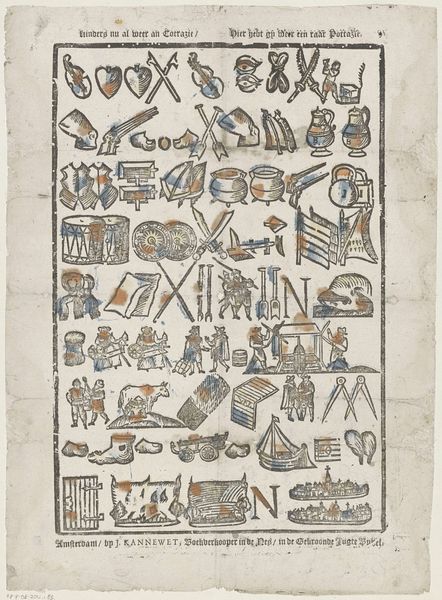 Kinders nu al weer an Corrazie / Hier hebt gy weer een radt Partasie.
N
N
Amsterdam / by J. KANNEWET, Boekverkooper in de Nes / in de Gekroonde Jugte Bybel.